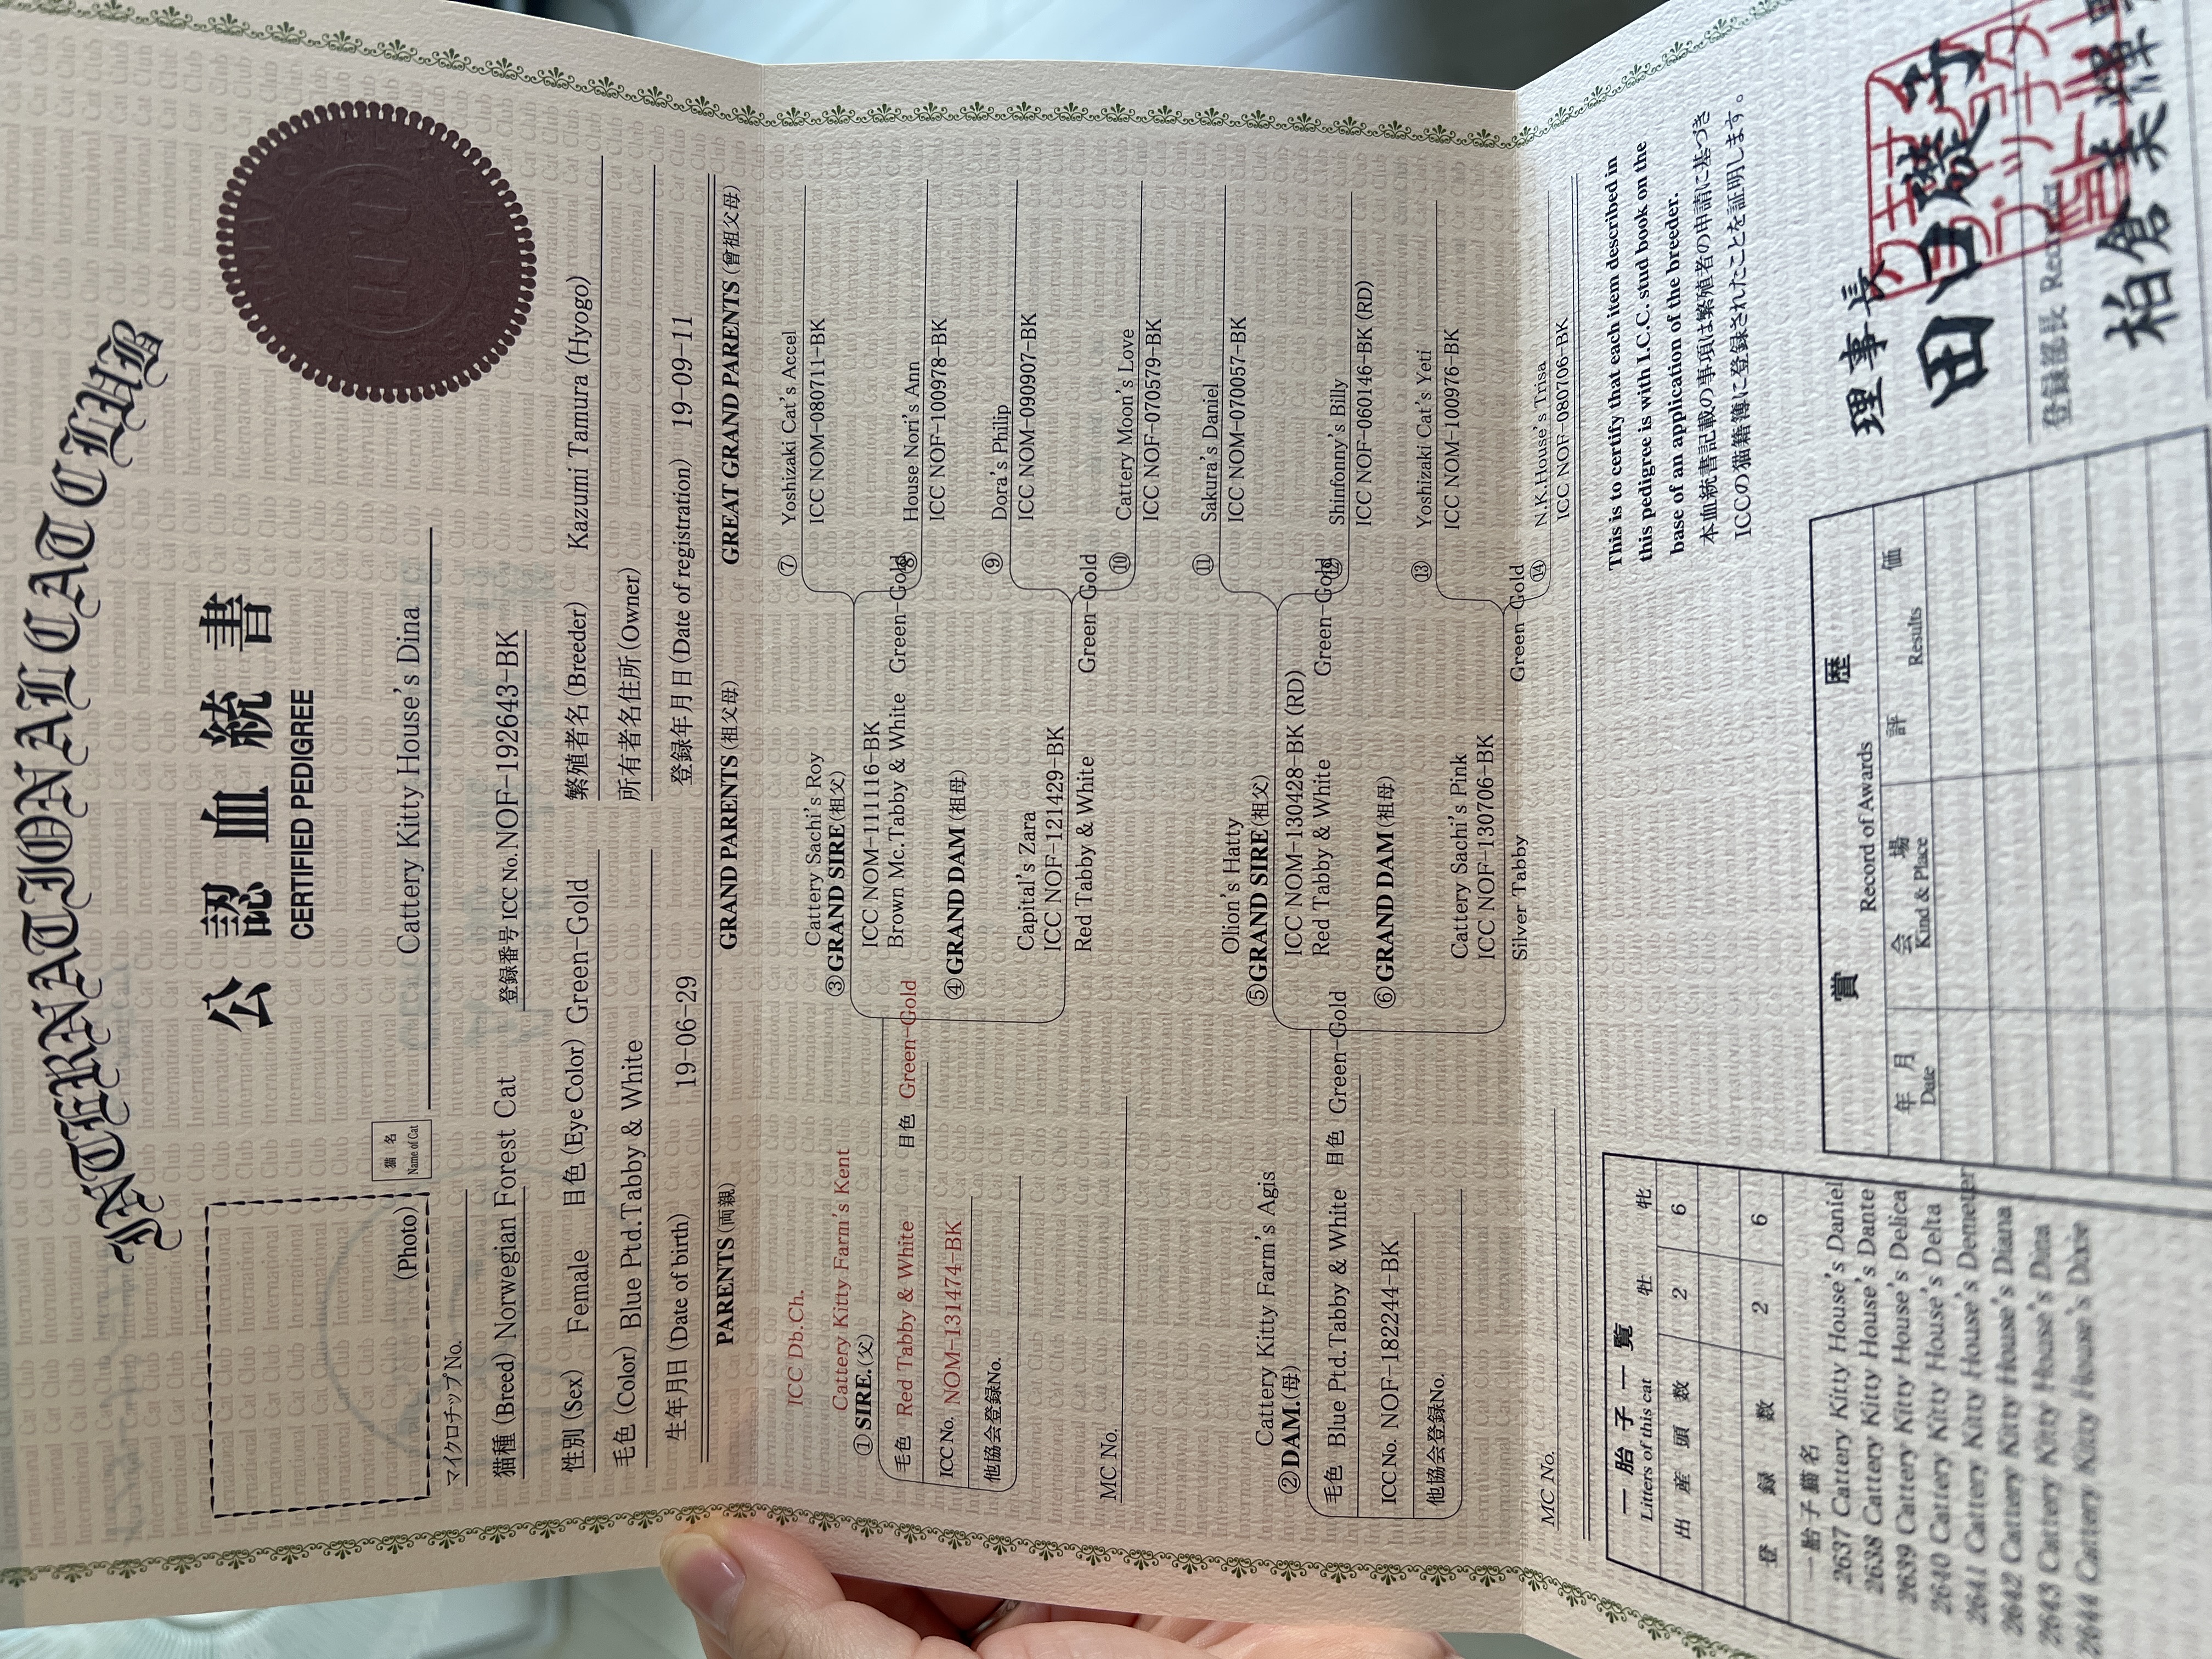 INTERNATIONAL CAT CLUB
公認血統書
CERTIFIED PEDIGREE
(Photo)
猫名
Name of Cat
Cattery Kitty House's Dina
マイクロチップNo.
猫種 (Breed) Norwegian Forest Cat
登録番号 ICC No. NOF-192643-BK
性別 (Sex) Female
目色 (Eye Color) Green-Gold
繁殖者名 (Breeder) Kazumi Tamura (Hyogo)
毛色 (Color) Blue Ptd.Tabby & White
所有者名住所 (Owner)
生年月日 (Date of birth) 19-06-29
登録年月日 (Date of registration) 19-09-11
PARENTS (両親)
GRAND PARENTS (祖父母)
GREAT GRAND PARENTS (曾祖父母)
ICC Db.Ch.
Cattery Kitty Farm's Kent
①SIRE.(父)
毛色 Red Tabby & White 目色 Green-Gold
ICC No. NOM-131474-BK
他協会登録No.
MC No.
Cattery Kitty Farm's Agis
②DAM.(母)
毛色 Blue Ptd.Tabby & White 目色 Green-Gold
ICC No. NOF-182244-BK
他協会登録No.
MC No.
Cattery Sachi's Roy
③GRAND SIRE(祖父)
ICC NOM-111116-BK
Brown Mc.Tabby & White Green-Gold
④GRAND DAM (祖母)
Capital's Zara
ICC NOF-121429-BK
Red Tabby & White Green-Gold
Olion's Hatty
⑤GRAND SIRE(祖父)
ICC NOM-130428-BK (RD)
Red Tabby & White Green-Gold
⑥GRAND DAM (祖母)
Cattery Sachi's Pink
ICC NOF-130706-BK
Silver Tabby Green-Gold
⑦ Yoshizaki Cat's Accel
ICC NOM-080711-BK
⑧ House Nori's Ann
ICC NOF-100978-BK
⑨ Dora's Philip
ICC NOM-090907-BK
⑩ Cattery Moon's Love
ICC NOF-070579-BK
⑪ Sakura's Daniel
ICC NOM-070057-BK
⑫ Shinfonny's Billy
ICC NOF-060146-BK (RD)
⑬ Yoshizaki Cat's Yeti
ICC NOM-100976-BK
⑭ N.K.House's Trisa
ICC NOF-080706-BK
一胎子一覧
Litters of this cat
牡 牝
出産頭数 2 6
登録数 2 6
一胎子猫名
2637 Cattery Kitty House's Daniel
2638 Cattery Kitty House's Dante
2639 Cattery Kitty House's Delica
2640 Cattery Kitty House's Delta
2641 Cattery Kitty House's Demeter
2642 Cattery Kitty House's Diana
2643 Cattery Kitty House's Dina
2644 Cattery Kitty House's
This is to certify that each item described in
this pedigree is with I.C.C. stud book on the
base of an application of the breeder.
本血統書記載の事項は繁殖者の申請に基づき
ICCの猫籍簿に登録されたことを証明します。
賞歴
Record of Awards
年月
Date
会場
Kind & Place
評価
Results
理事長
田口
登録部長
柏倉美